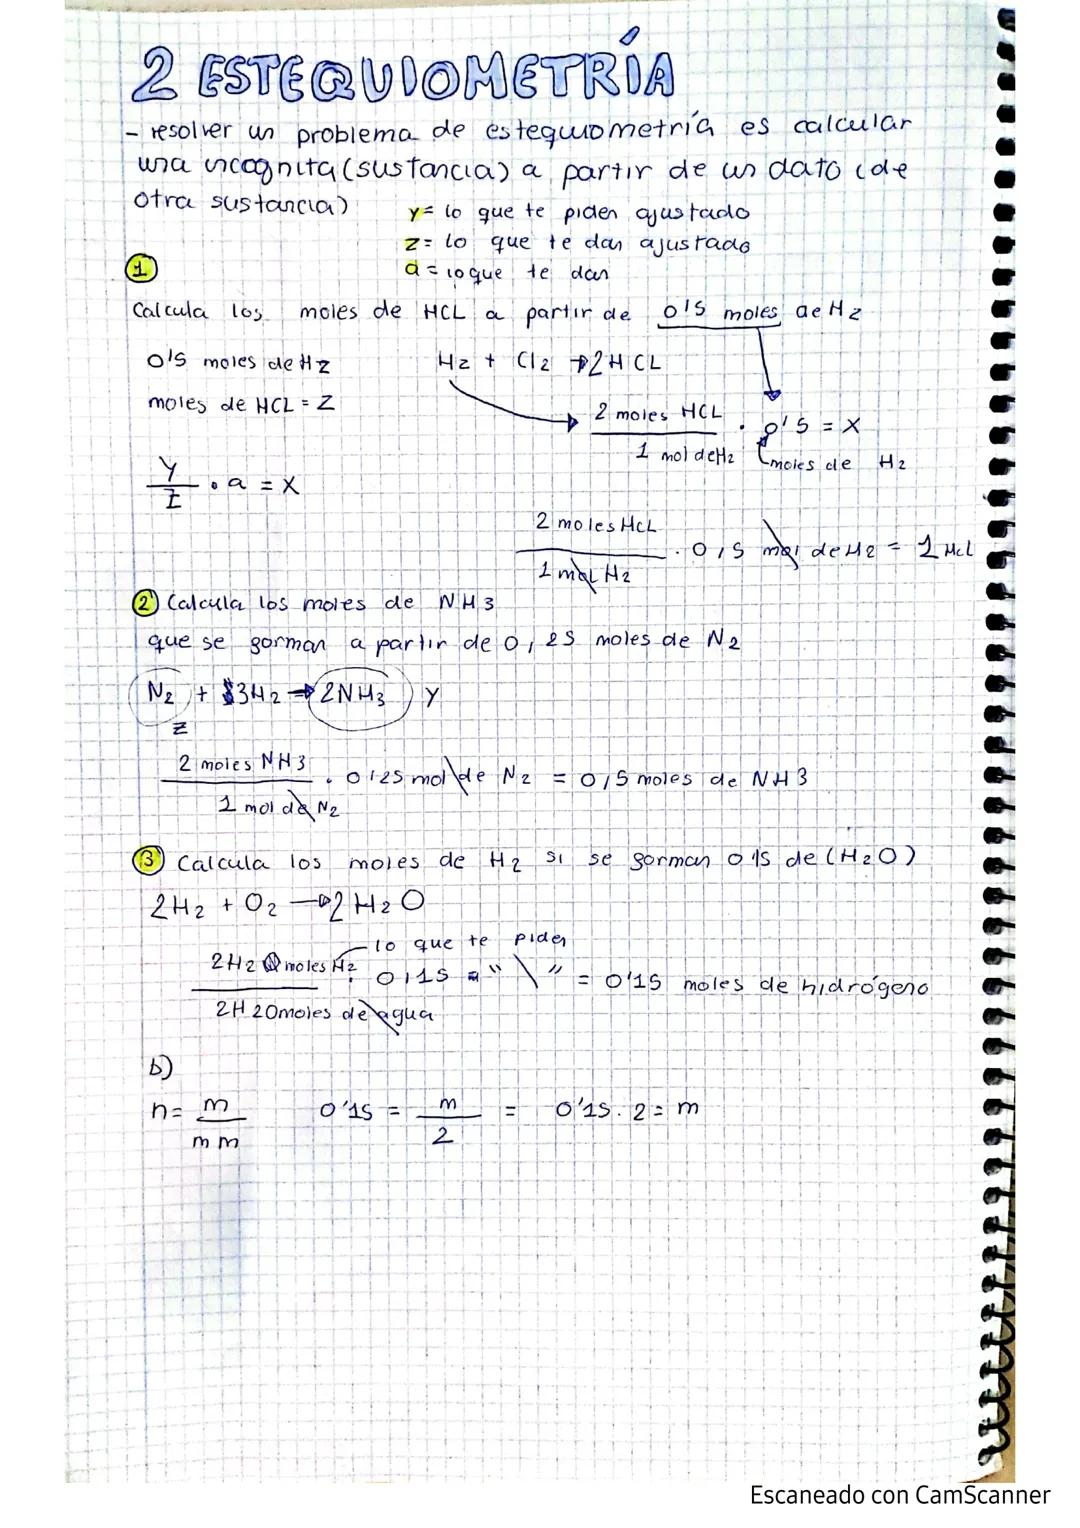 2 ESTEQUIOMETRÍA
- resolver un problema de estequiometría es calcular
una incognita (sustancia) a partir de un dato (de
otra sustancia)
y = lo que te piden ajustado
z = lo que te dan ajustado
a = lo que te dan
1
Calcula los moles de HCL a partir de 0'5 moles de H2
0'5 moles de H2
H2 + Cl2 → 2HCL
moles de HCL = Z
2 moles HCL
1 mol de H2
· 0'5 = X
moles de H2
Y
Z
· a = X
2 moles HCL
1 mol H2
· 0,5 mol de H2 = 1 HCl
2 Calcula los moles de NH3
que se gorman a partir de 0,25 moles de N2
N2 + 3H2 → 2NH3 Y
Z
2 moles NH3
1 mol de N2
· 0,25 mol de N2 = 0,5 moles de NH3
3 Calcula los moles de H2 si se gorman 0'15 de (H2O)
2H2 + O2 → 2H2O
lo que te piden
2H2 moles H2
2H2O moles de agua
· 0,15 " \ " = 0'15 moles de hidrógeno
b)
n = m
mm
0'15 = m
2
= 0'15 · 2 = m
Escaneado con CamScanner